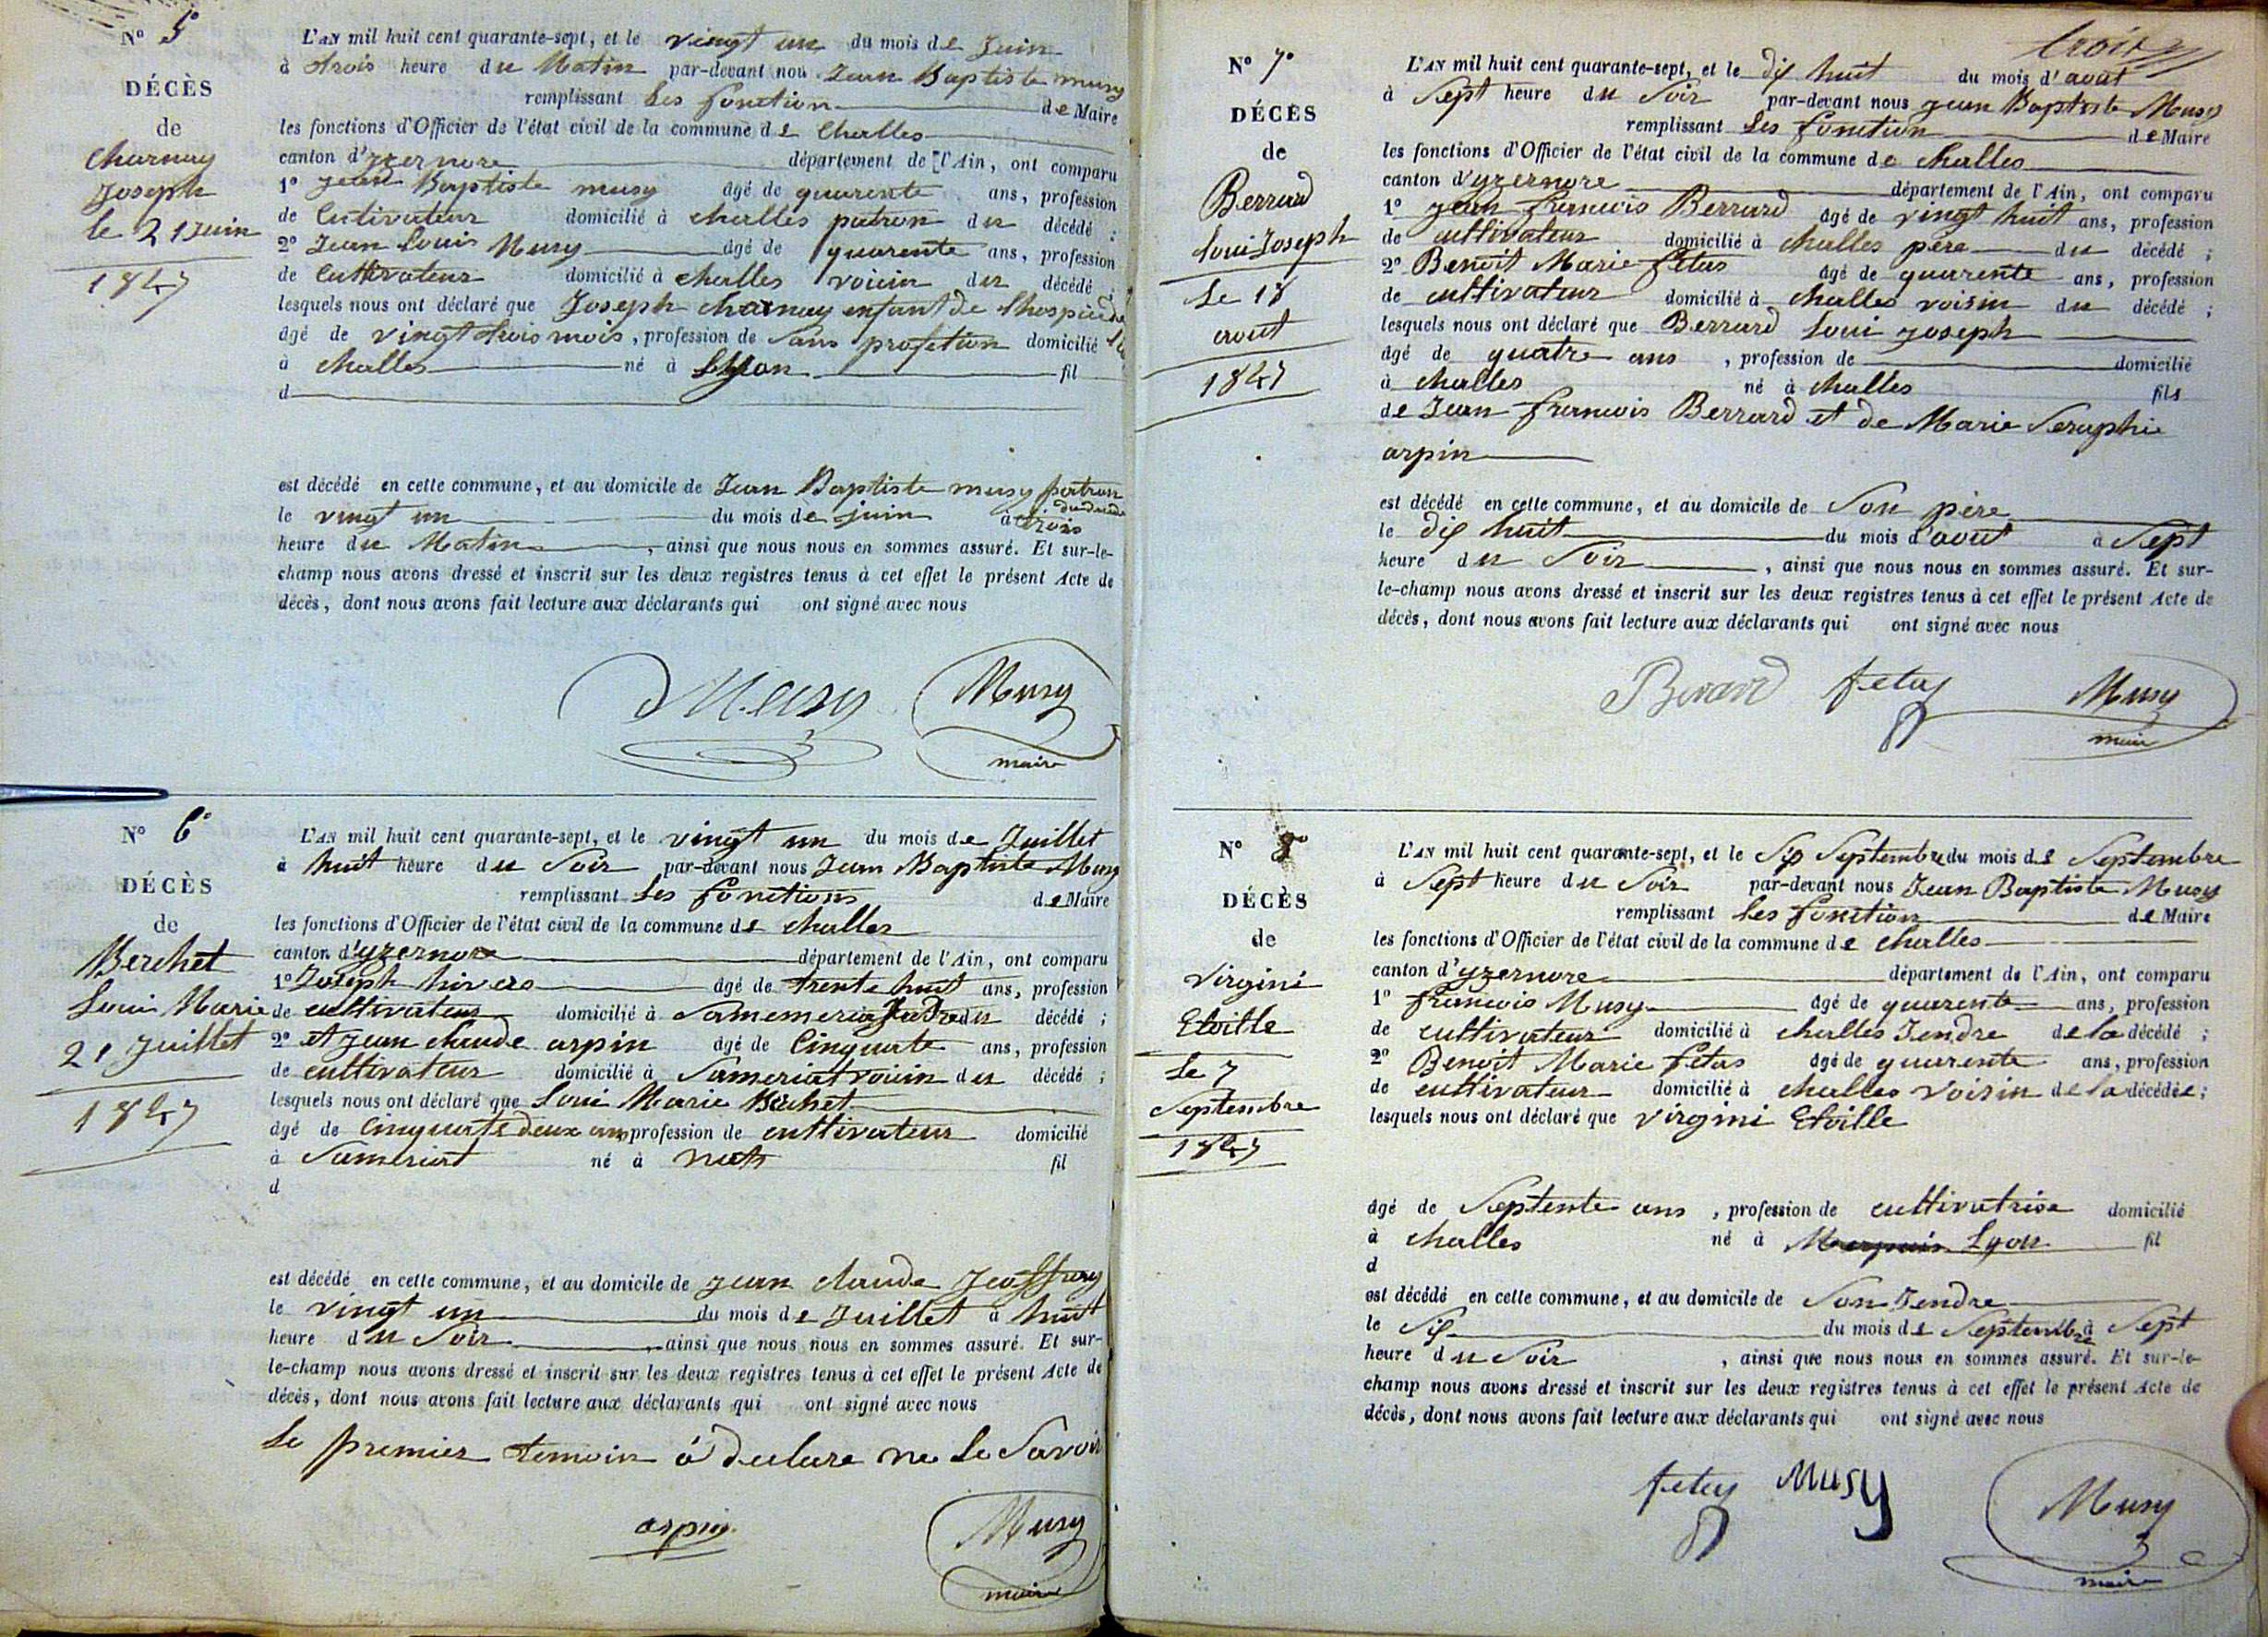 N° 5°
DÉCÈS
de
Charnay
Joseph
le 21 juin
1847
L'AN mil huit cent quarante-sept, et le vingt un du mois de Juin
à trois heure du Matin par-devant nou Jean Baptiste musy
remplissant Les fonction de Maire
les fonctions d'Officier de l'état civil de la commune de Challes
canton d'yzernore département de l'Ain, ont comparu
1° Jean Baptiste musy âgé de quarente ans, profession
de Cutivateur domicilié à challes patron du décédé ;
2° Jean Louis Musy âgé de quarente ans, profession
de Cultivateur domicilié à challes voisin du décédé ;
lesquels nous ont déclaré que Joseph charnay enfant de lhospice de
âgé de vingt trois mois, profession de Sans profetion domicilié
à challes né à Lyon fil
d
est décédé en cette commune, et au domicile de Jean Baptiste musy patron
le vingt un du mois de juin à trois
heure du Matin, ainsi que nous nous en sommes assuré. Et sur-le-
champ nous avons dressé et inscrit sur les deux registres tenus à cet effet le présent Acte de
décès, dont nous avons fait lecture aux déclarants qui ont signé avec nous
Musy Musy
maire
N° 6°
DÉCÈS
de
Berchet
Loui Marie
21 Juillet
1847
L'AN mil huit cent quarante-sept, et le vingt un du mois de Juillet
à huit heure du Soir par-devant nous Jean Baptiste Musy
remplissant Les fonctions de Maire
les fonctions d'Officier de l'état civil de la commune de challes
canton d'yzernore département de l'Ain, ont comparu
1° Joseph hivers âgé de trente huit ans, profession
de cultivateur domicilié à du décédé ;
2° et jean claude arpin âgé de Cinquate ans, profession
de cultivateur domicilié à Sameriat voisin du décédé ;
lesquels nous ont déclaré que Loui Marie Berchet
âgé de Cinquate deux ans profession de cultivateur domicilié
à Sameriat né à fil
d
est décédé en cette commune, et au domicile de jean claude Jeoffray
le vingt un du mois de Juillet à huit
heure du Soir, ainsi que nous nous en sommes assuré. Et sur-
le-champ nous avons dressé et inscrit sur les deux registres tenus à cet effet le présent Acte de
décès, dont nous avons fait lecture aux déclarants qui ont signé avec nous
Le premier temoin à declare ne Le Savoir
arpin Musy
maire
trois
N° 7°
DÉCÈS
de
Berrard
Loui Joseph
Le 18
aout
1847
L'AN mil huit cent quarante-sept, et le dix huit du mois d'aout
à Sept heure du Soir par-devant nous jean Baptiste Musy
remplissant Les fonction de Maire
les fonctions d'Officier de l'état civil de la commune de challes
canton d'yzernore département de l'Ain, ont comparu
1° jean francois Berrard âgé de vingt huit ans, profession
de cultivateur domicilié à challes père du décédé ;
2° Benoit Marie fétas âgé de quarente ans, profession
de cultivateur domicilié à challes voisin du décédé ;
lesquels nous ont déclaré que Berrard Loui joseph
âgé de quatre ans, profession de domicilié
à challes né à challes fils
de Jean francois Berrard et de Marie Seraphie
arpin
est décédé en cette commune, et au domicile de Son père
le dix huit du mois d'aout à Sept
heure du Soir, ainsi que nous nous en sommes assuré. Et sur-
le-champ nous avons dressé et inscrit sur les deux registres tenus à cet effet le présent Acte de
décès, dont nous avons fait lecture aux déclarants qui ont signé avec nous
Berard fetas Musy
maire
N° 8°
DÉCÈS
de
Virgini
Etoille
Le 7
Septembre
1847
L'AN mil huit cent quarante-sept, et le Six Septembre du mois de Septembre
à Sept heure du Soir par-devant nous Jean Baptiste Musy
remplissant Les fonction de Maire
les fonctions d'Officier de l'état civil de la commune de challes
canton d'yzernore département de l'Ain, ont comparu
1° francois Musy âgé de quarente ans, profession
de cultivateur domicilié à challes Jendre de la décédé ;
2° Benoit Marie fétas âgé de quarente ans, profession
de cultivateur domicilié à challes Voisin de la décédée ;
lesquels nous ont déclaré que Virgini Etoille
âgé de Septente ans, profession de cultivatrise domicilié
à challes né à Lyon fil
d
est décédé en cette commune, et au domicile de Son Jendre
le Six du mois de Septembre à Sept
heure du Soir, ainsi que nous nous en sommes assuré. Et sur-le-
champ nous avons dressé et inscrit sur les deux registres tenus à cet effet le présent Acte de
décès, dont nous avons fait lecture aux déclarants qui ont signé avec nous
fetas Musy Musy
maire